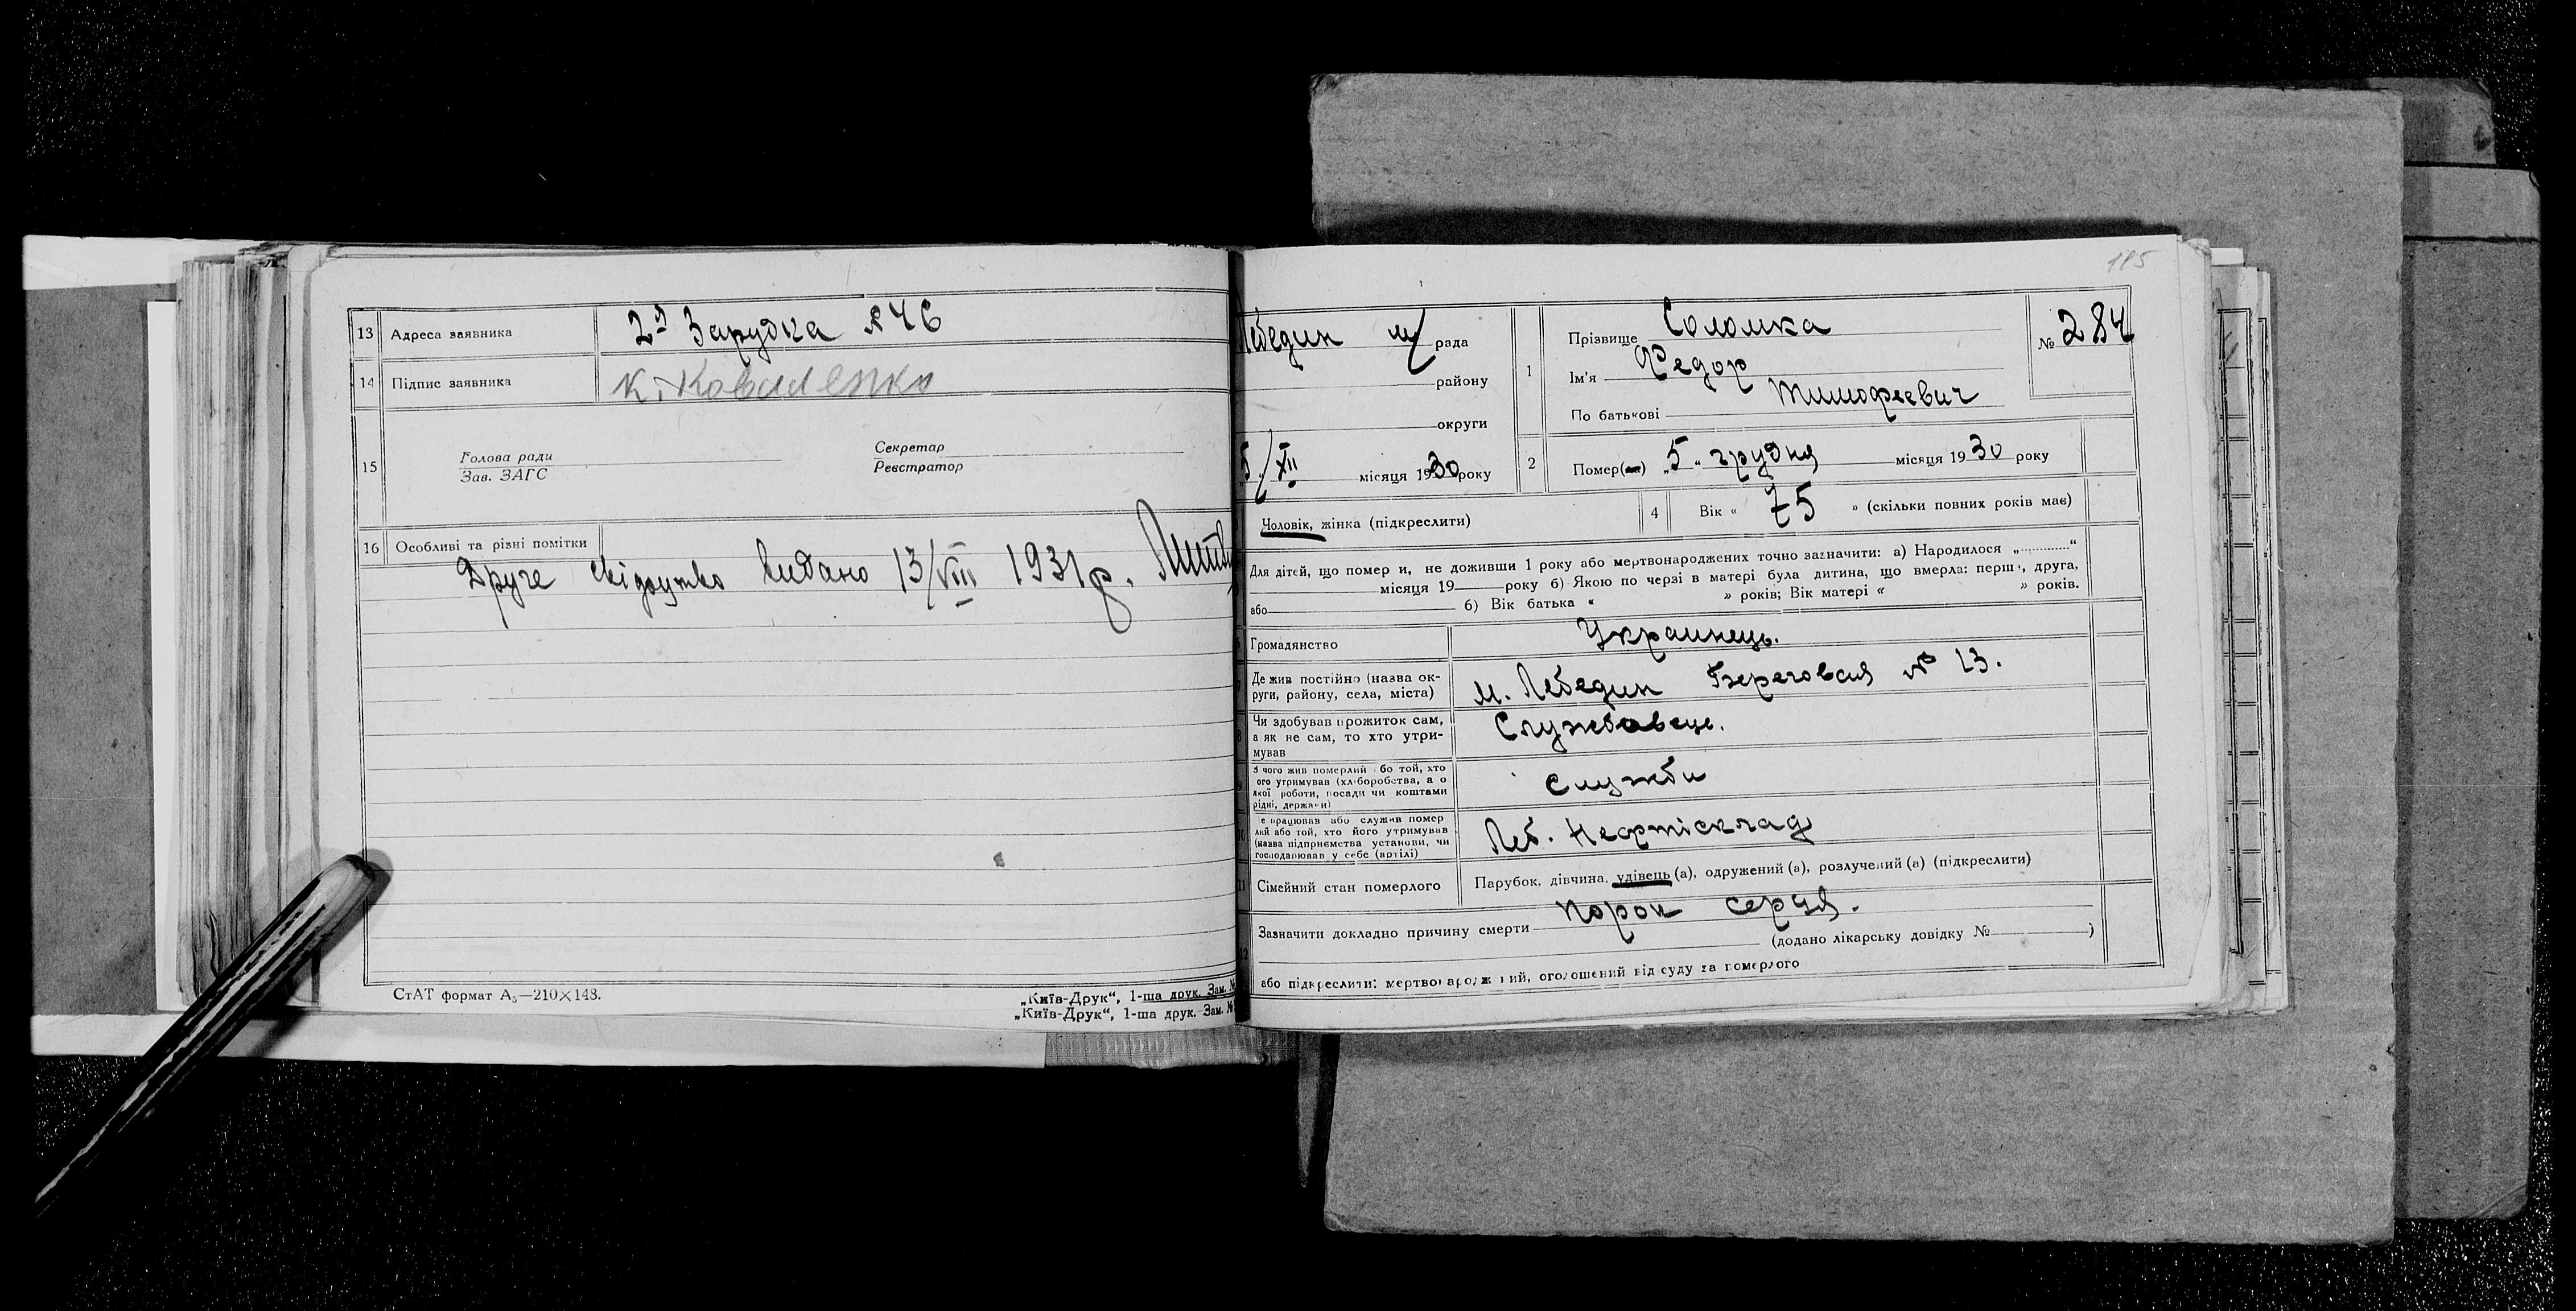 13 Адреса заявника 2я Зарудка № 46
14 Підпис заявника К. Коваленко
15 Голова ради
Зав. ЗАГС
Секретар
Реєстратор
16 Особливі та різні помітки
Друге свідоцтво видано 13/VIII 1931 р.
СтАТ формат А₅—210×148.
„Київ-Друк“, 1-ша друк. Зам. №
„Київ-Друк“, 1-ша друк. Зам. №
185
Лебедин м/рада
району
округи
5/XII місяця 1930 року
1 Прізвище Соломка
Ім'я Федор
По батькові Тимофеевич
№ 284
2 Помер(ла) „5“ грудня місяця 1930 року
Чоловік, жінка (підкреслити)
4 Вік « 75 » (скільки повних років має)
Для дітей, що помер и, не доживши 1 року або мертвонароджених точно зазначити: а) Народилося „ “
місяця 19 року б) Якою по черзі в матері була дитина, що вмерла: перш , друга,
або б) Вік батька « » років; Вік матері « » років.
Громадянство Украинець.
Де жив постійно (назва ок-
руги, району, села, міста) м. Лебедин Береговая № 13.
Чи здобував прожиток сам,
а як не сам, то хто утри-
мував Службовець.
З чого жив померлий або той, хто
ого утримував (хліборобства, а о
якої роботи, посади чи коштами
рідні, держави) Служби
е працював або служив помер
лий або той, хто його утримував
(назва підприємства установи, чи
господарював у себе (артілі) Леб. Нефтісклад
11 Сімейний стан померлого Парубок, дівчина, удівець (а), одружений (а), розлучений (а) (підкреслити)
Зазначити докладно причину смерти порок серця.
(додано лікарську довідку № )
або підкреслити: мертвонароджений, оголошений від суду за померлого